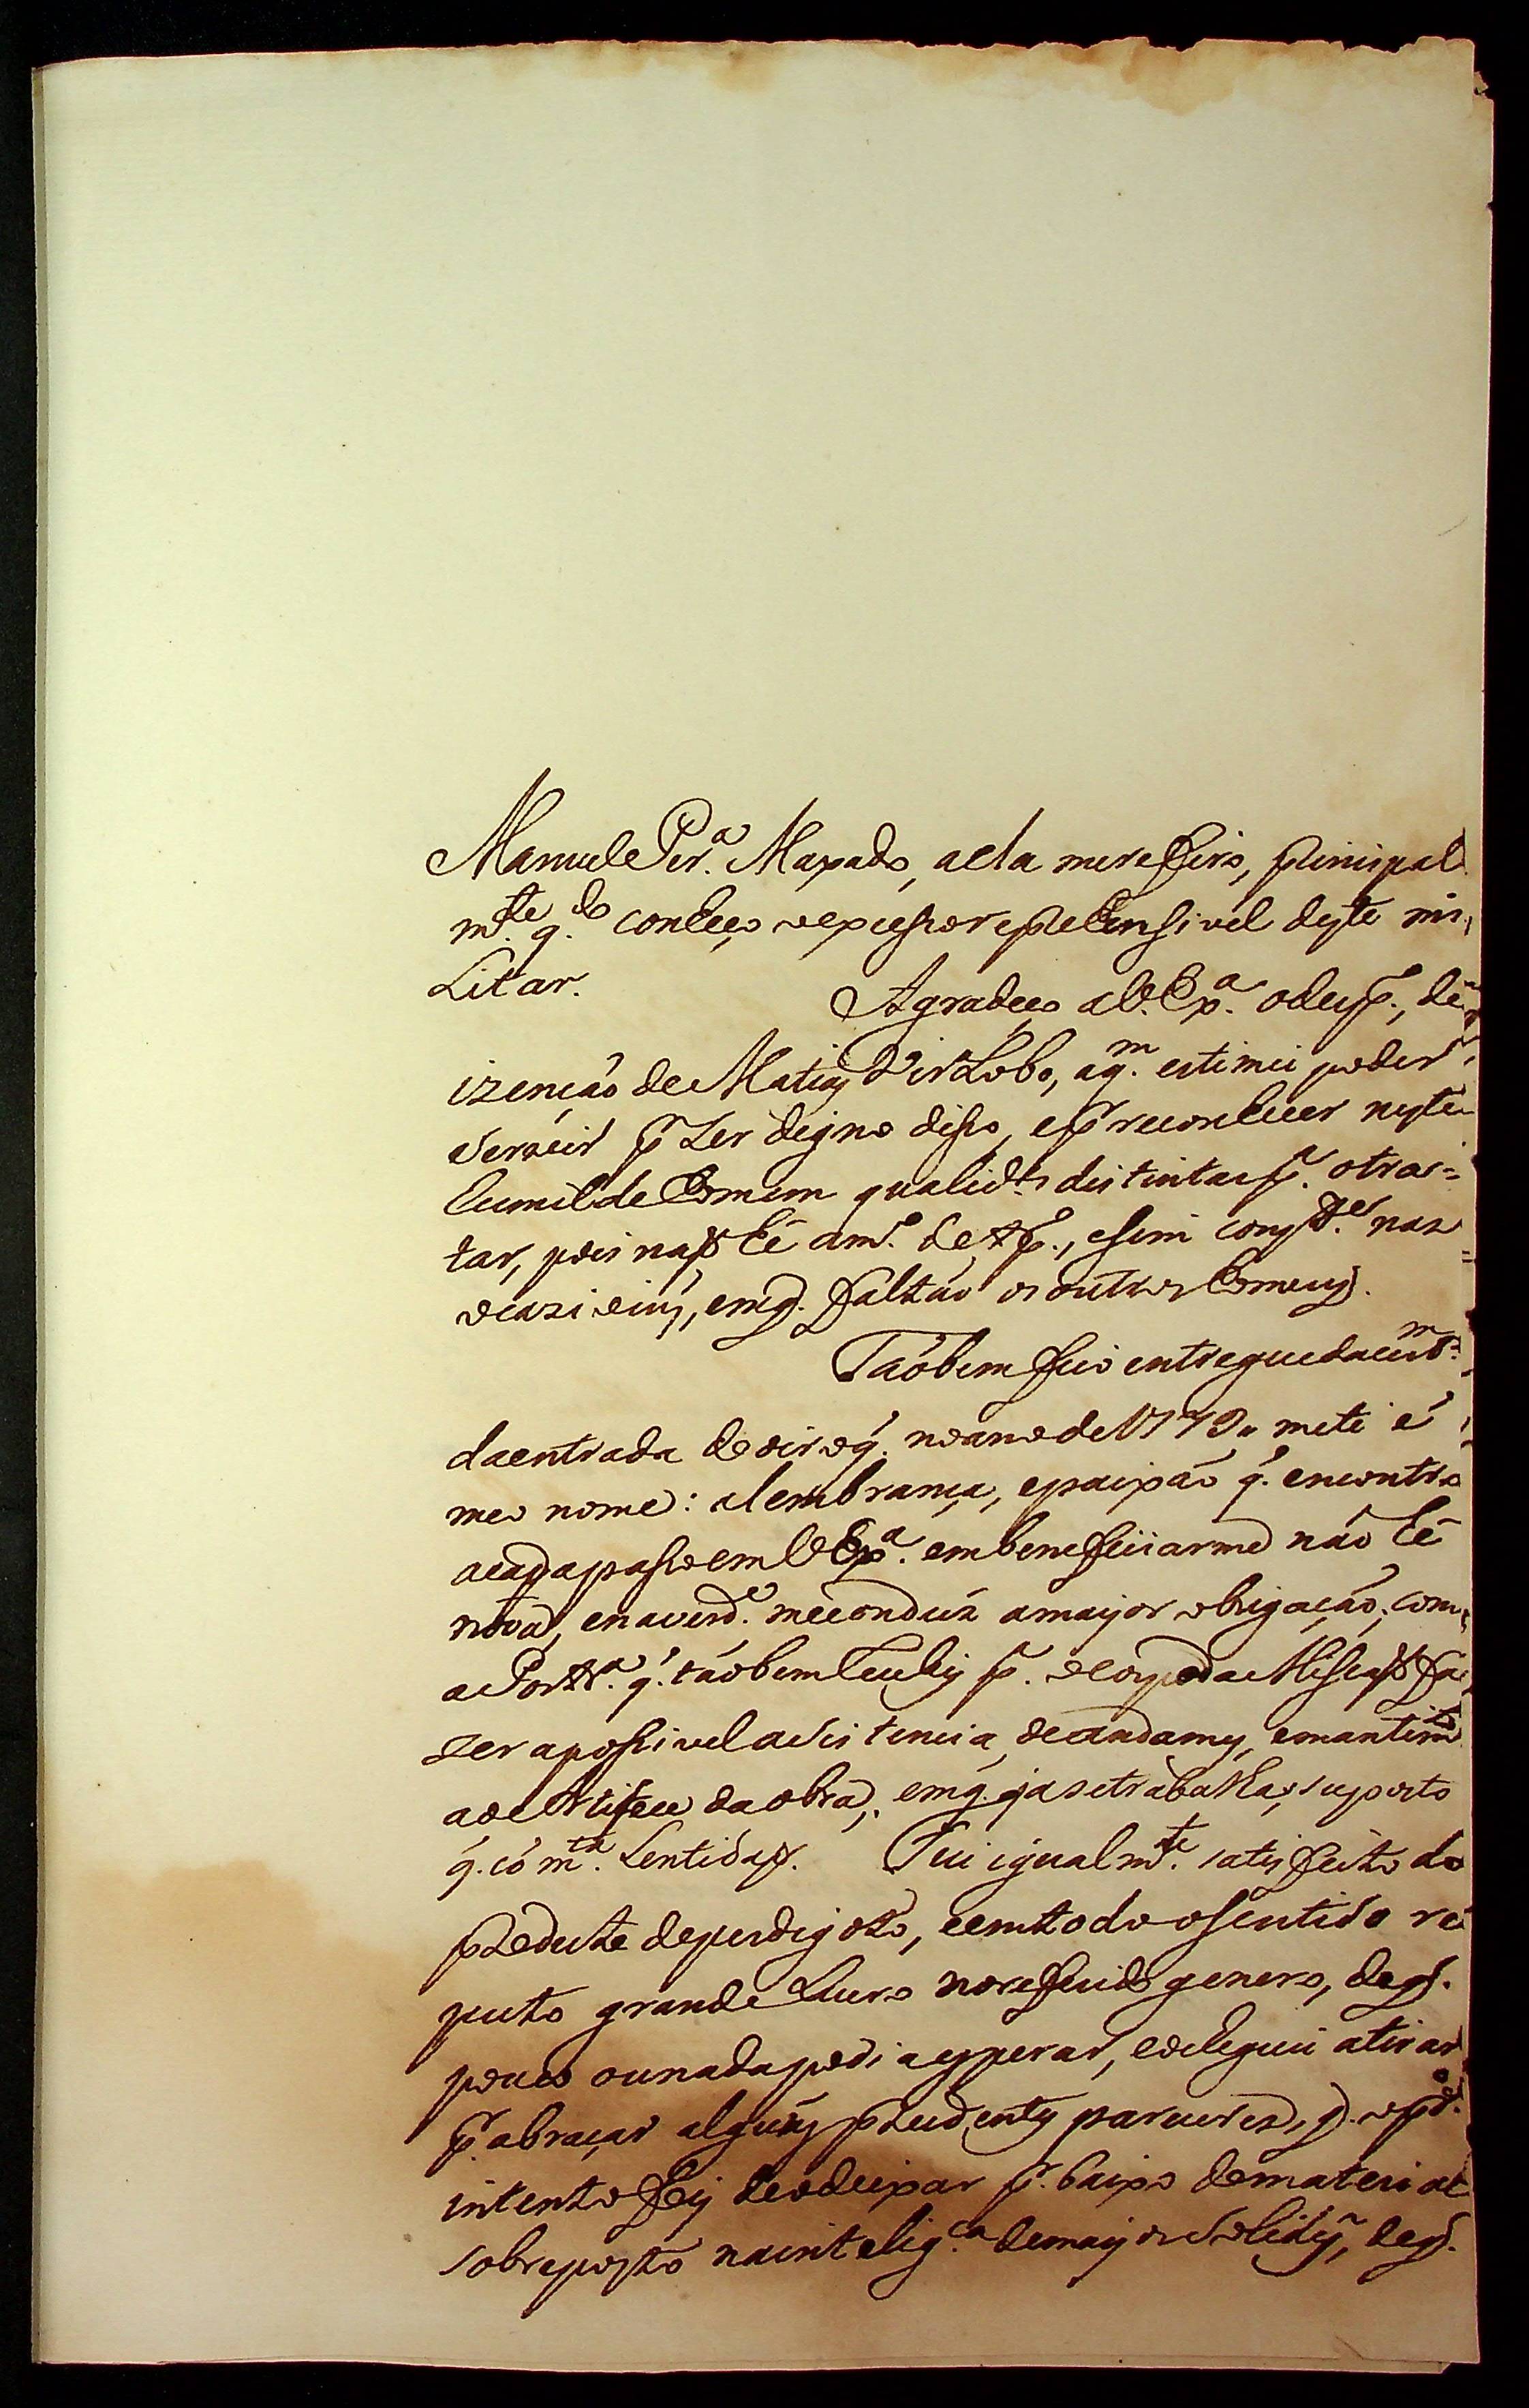 Manuel Per.ª Maxado, a ella me refiro, principal
m.te q.do conheço o expresso reprehensivel deste mi
Litar.
Agradeço a V. Ex.ª o desp., de
izenção de Matias Vir Lobo, a q.m estimei poder
Servir p.r Ser digno disso, e p.r reconhecer neste
humilde homem qualid.es distintas p.ª o trac=
tar, pois nas hé am.º de, esim nas
ocazioins, em q. faltão os outros homens.
Taobem fui entregue da cert.m
da entrada de oiro q. no ano de 1779 meti é
meo nome: a lembrança, e paixão q. encontro
a cada passo em V Ex.ª em beneficiarme não hé
nova, e na verd.e me conduz a mayor obrigação; com
a Port.ª q. taobem recebi p.ª o Corpo da fa
zer a possivel asistencia de andamês, e mantim.to
ao Artifece da obra, em q. ja se trabalha, suposto
q. có m.tª Lentidaõ. Fui igualm.te satisfeito do
de perdigoto, e em todo o sentido re
puto grande Lucro no referido genero, de q.
pouco ou nada podia esperar, e o cheguei a tirar
p.r abraçar alguns prudentes pareceres, q. o pr.º
intento foi de o deixar p.r baixo de material
sobreposto na intelig.ca de mayor Solidês, de q.